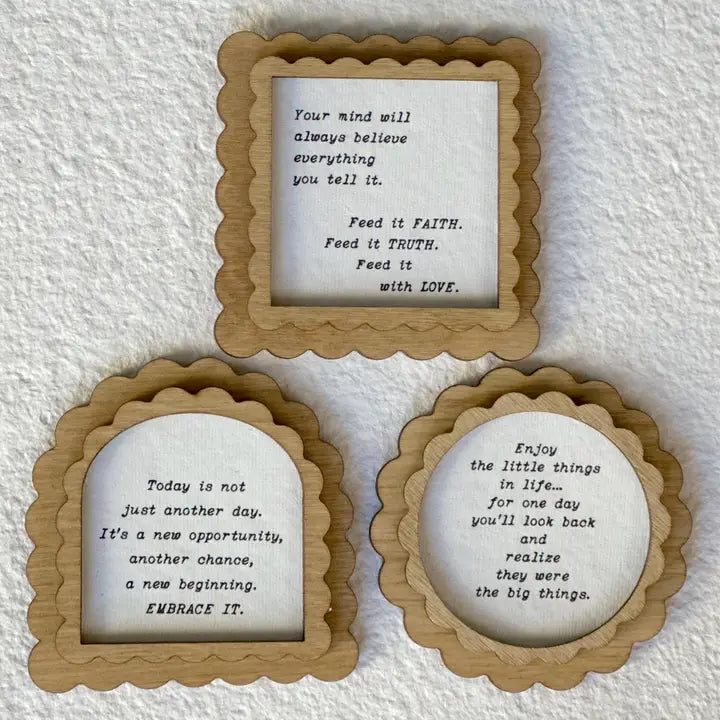 Your mind will
always believe
everything
you tell it.
Feed it FAITH.
Feed it TRUTH.
Feed it
with LOVE.
Today is not
just another day.
It's a new opportunity,
another chance,
a new beginning.
EMBRACE IT.
Enjoy
the little things
in life...
for one day
you'll look back
and
realize
they were
the big things.